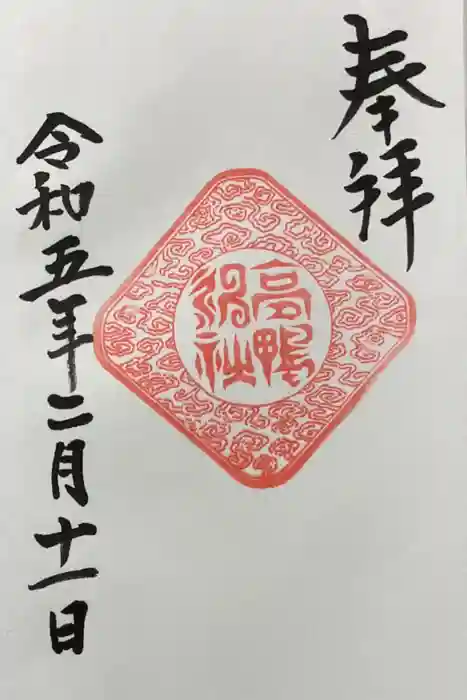 奉拝
高鴨
神社
令和五年二月十一日